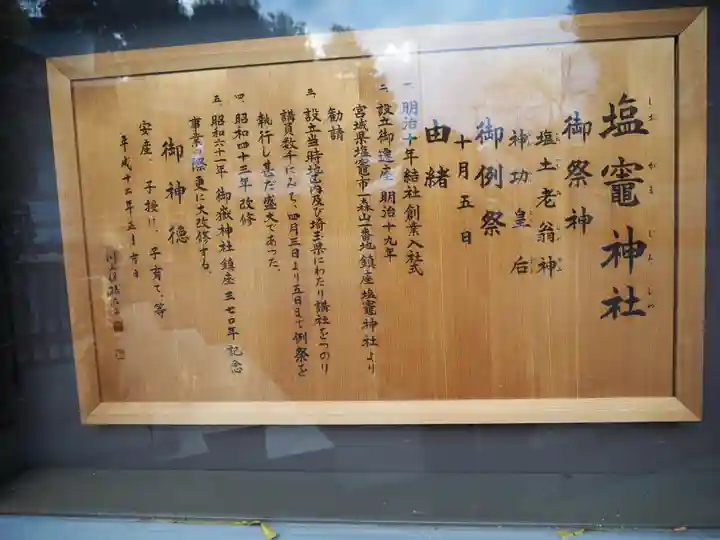 塩竈神社
しおがまじんじゃ
御祭神
塩土老翁神
神功皇后
御例祭
十月五日
由緒
一、明治十年結社創業入社式
二、設立御遷座 明治十九年
宮城県塩竈市一森山一番地鎮座塩竈神社より
勧請
三、設立当時地区内及び埼玉県にわたり講社をつのり
講員数千にみち、四月三日より五日まで例祭を
執行し甚だ盛大であった。
四、昭和四十三年改修
五、昭和六十一年 御嶽神社鎮座三七〇年記念
事業の際更に大改修する。
御神徳
安産、子授け、子育て、等
平成十二年五月吉日